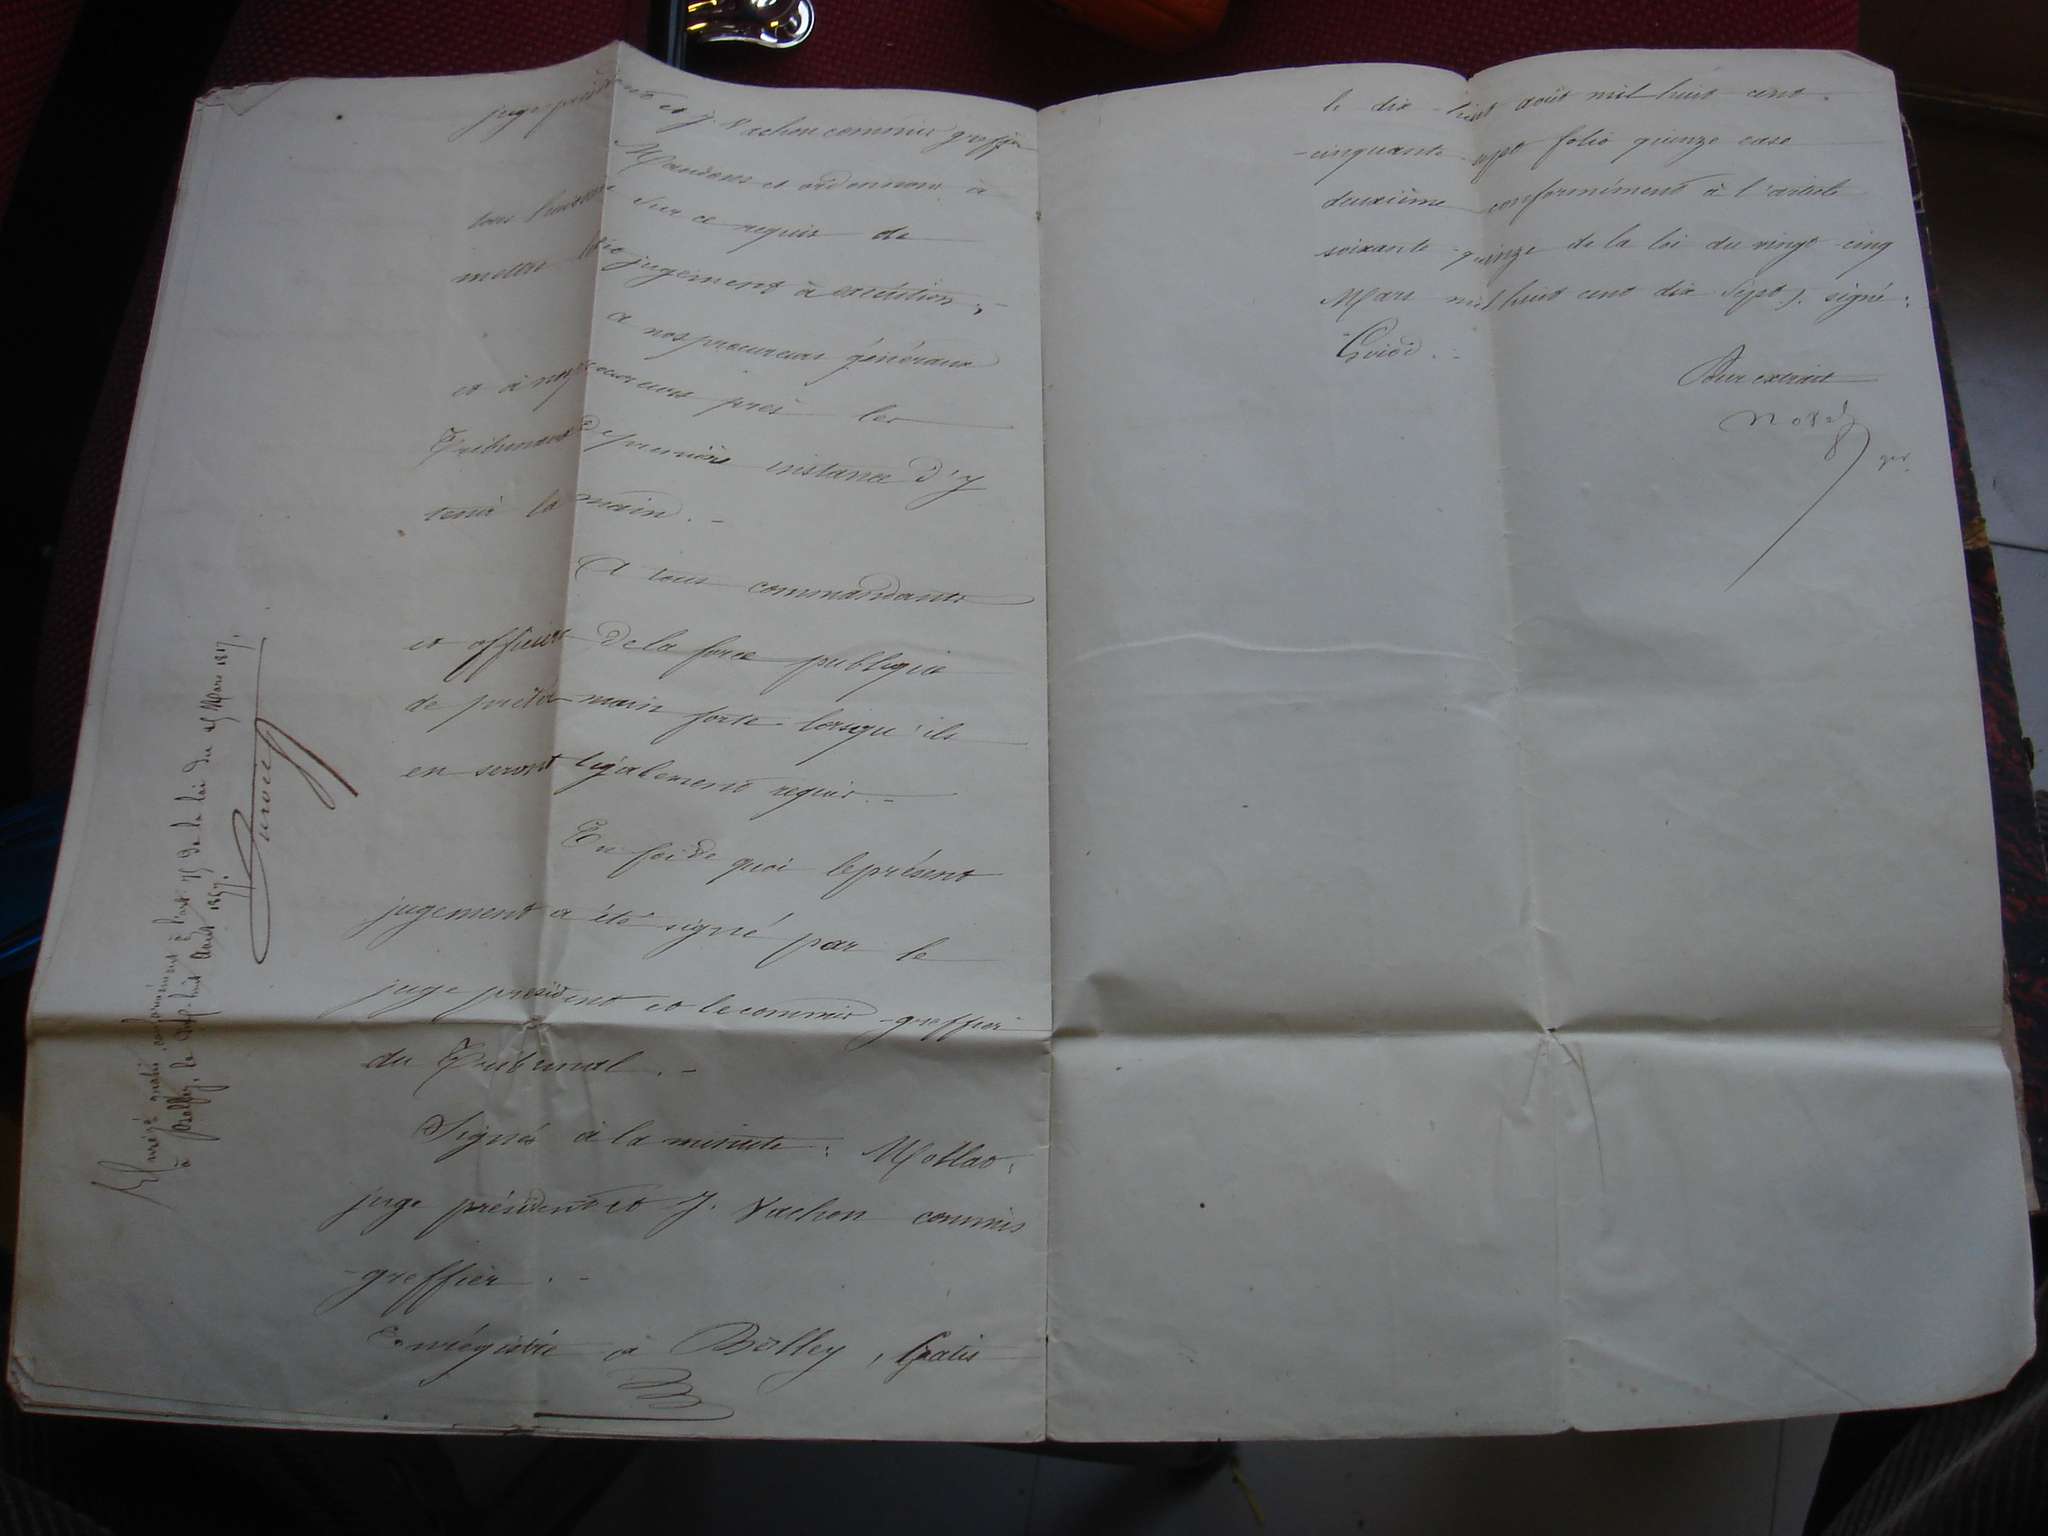 juge président et J. Vachon commis greffier
Mandons et ordonnons à
tous huissiers sur ce requis de
mettre le dit jugement à exécution ;
a nos procureurs généraux
et à nos procureurs près les
Tribunaux de première instance d'y
tenir la main . -
A tous commandants
et officiers de la force publique
de prêter main forte lorsqu'ils
en seront légalement requis . -
En foi de quoi le présent
jugement a été signé par le
juge président et le commis - greffier
du Tribunal . -
Signés à la minute : Mollar ,
juge président et J. Vachon commis
- greffier . -
Enrégistré à Belley , Gratis
Enrégé gratis, conformément à l'art 75 de la loi du 25 Mars 1817.
à Belley, le dix-huit Août 1857.
le dix-huit août mil huit cent
- cinquante-sept folio quinze case
deuxième conformément à l'article
soixante-quinze de la loi du vingt-cinq
Mars mil huit cent dix sept). signé :
Pour extrait